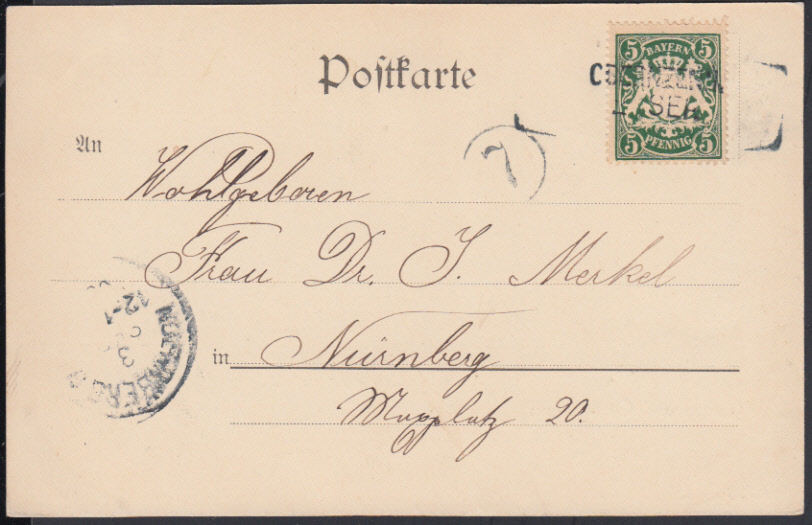 Postkarte
5 BAYERN 5
5 PFENNIG 5
SEE
7
An
Wohlgeboren
Frau Dr. J. Merkel
in Nürnberg
Maxplatz 20.
NUERNBERG
12-1
3